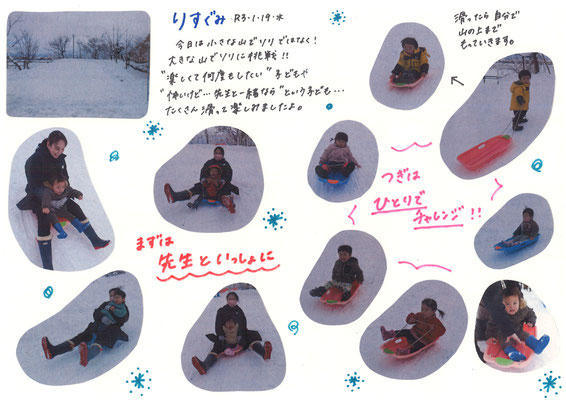 りすぐみ R3・1・19・水
今日は小さな山でソリではなく!
大きな山でソリに挑戦!!
"楽しくて何度もしたい"子どもや
"怖いけど…先生と一緒なら"という子ども…
たくさん滑って楽しみましたよ。
滑ったら自分で
山の上まで
もっていきます。
つぎは
ひとりで
チャレンジ!!
まずは
先生といっしょに